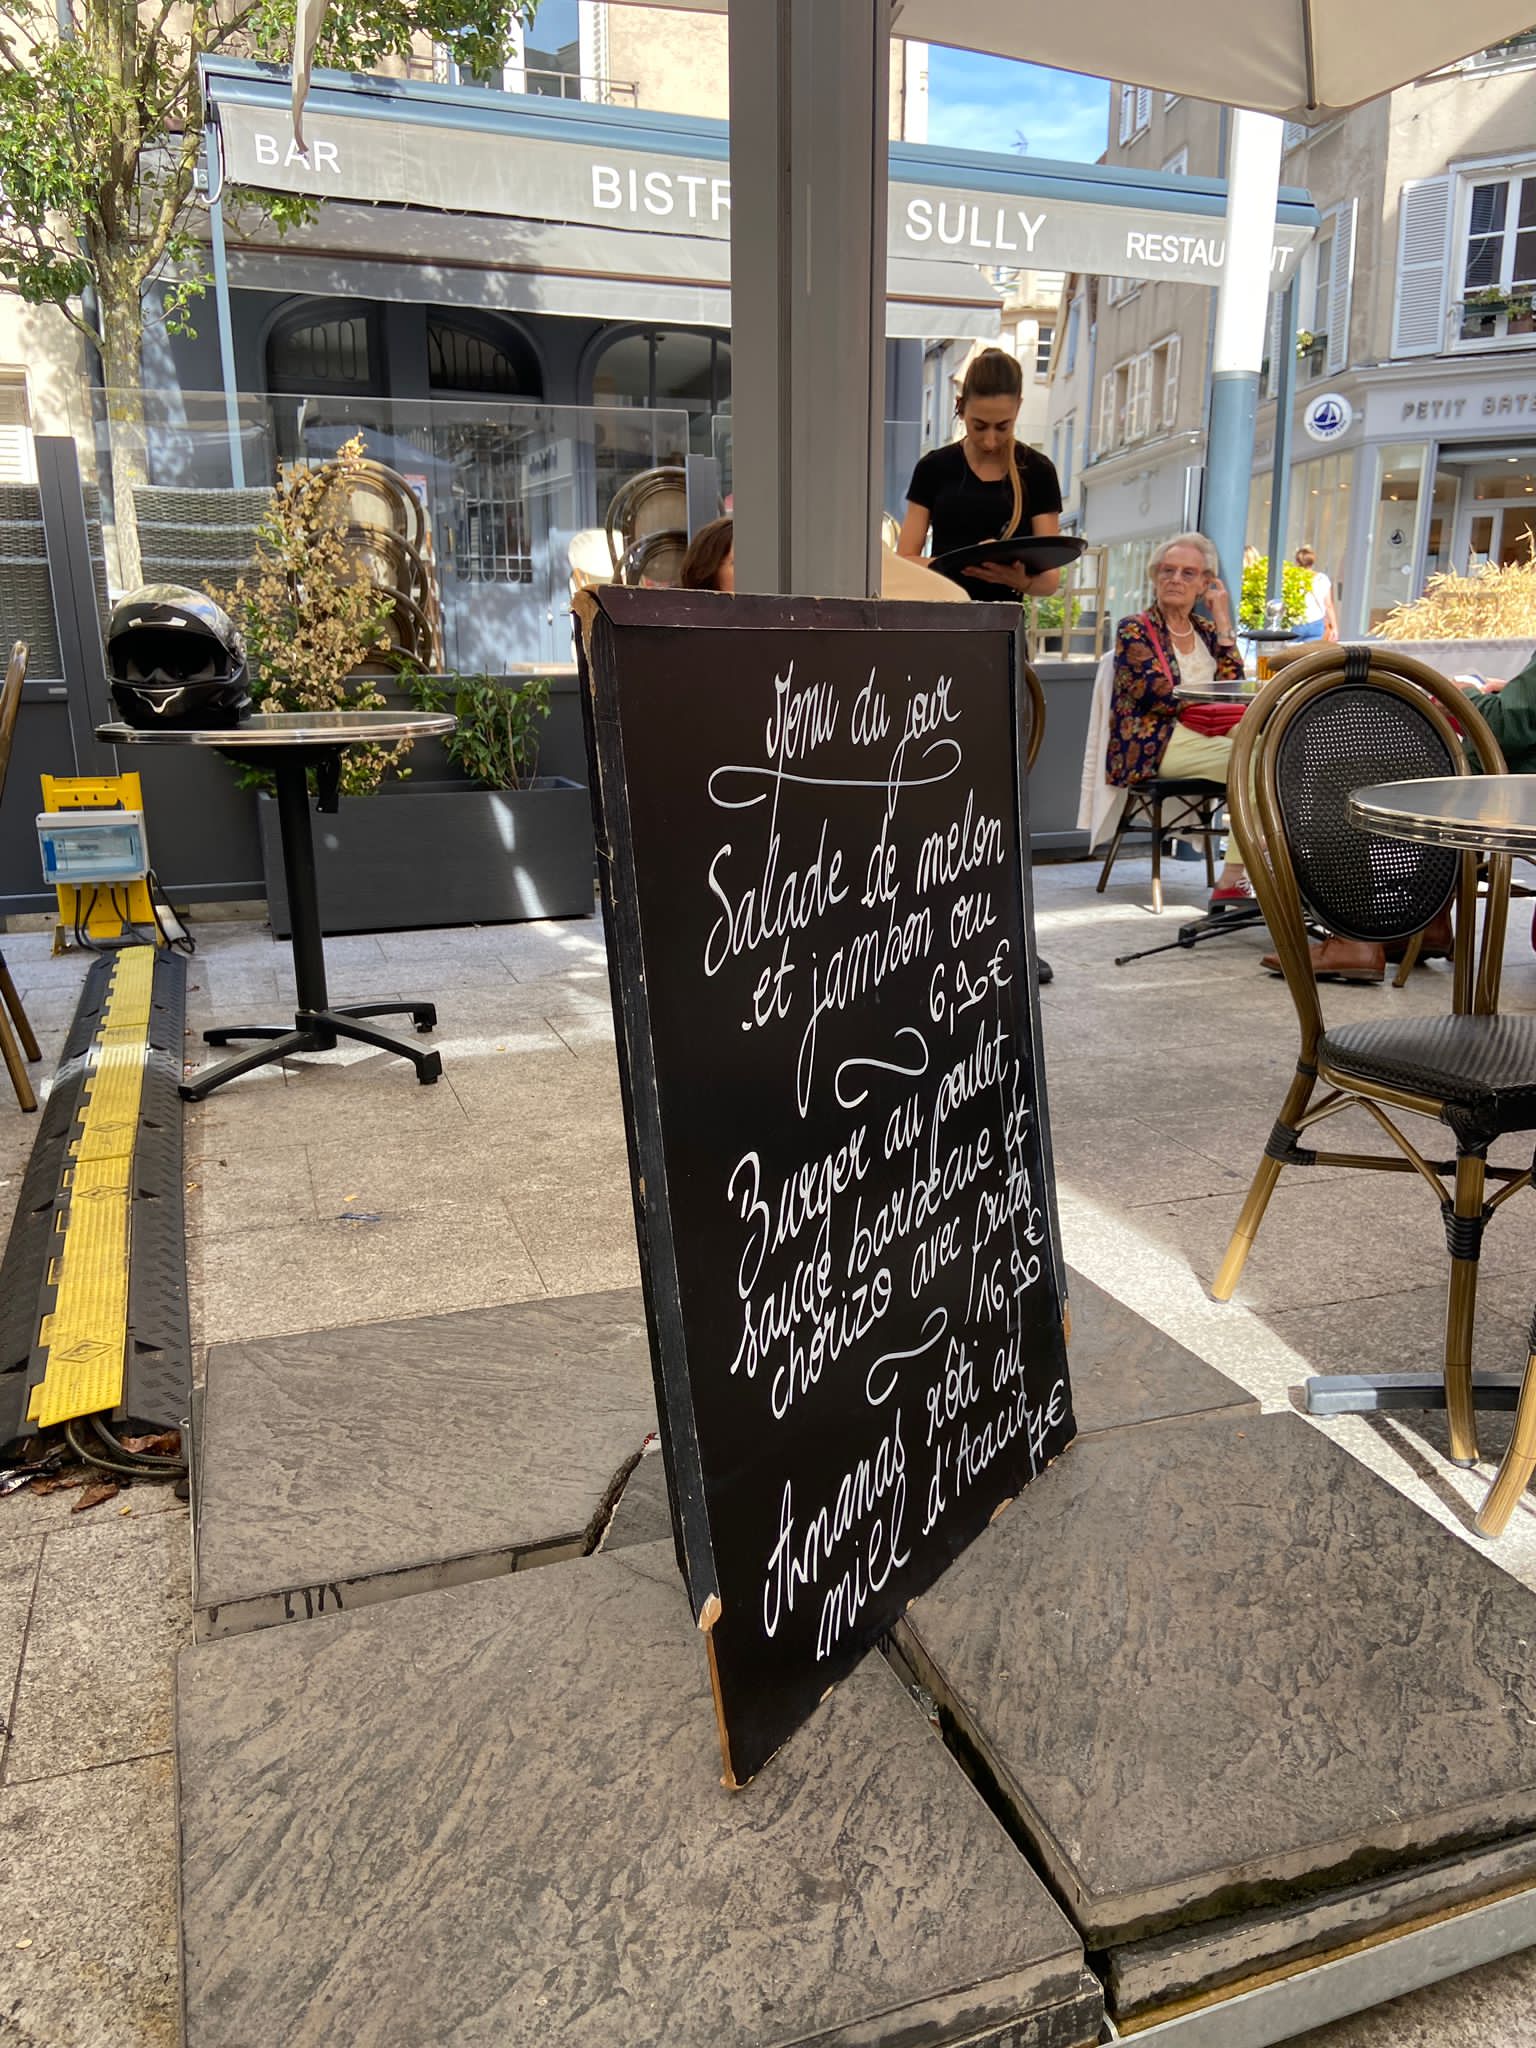 BAR
BISTR
SULLY
RESTAU NT
PETIT BAT
Menu du jour
Salade de melon
et jambon cru
6,90€
Burger au poulet,
sauce barbecue et
chorizo avec frites
16,90€
Ananas rôti au
miel d'Acacia
7€